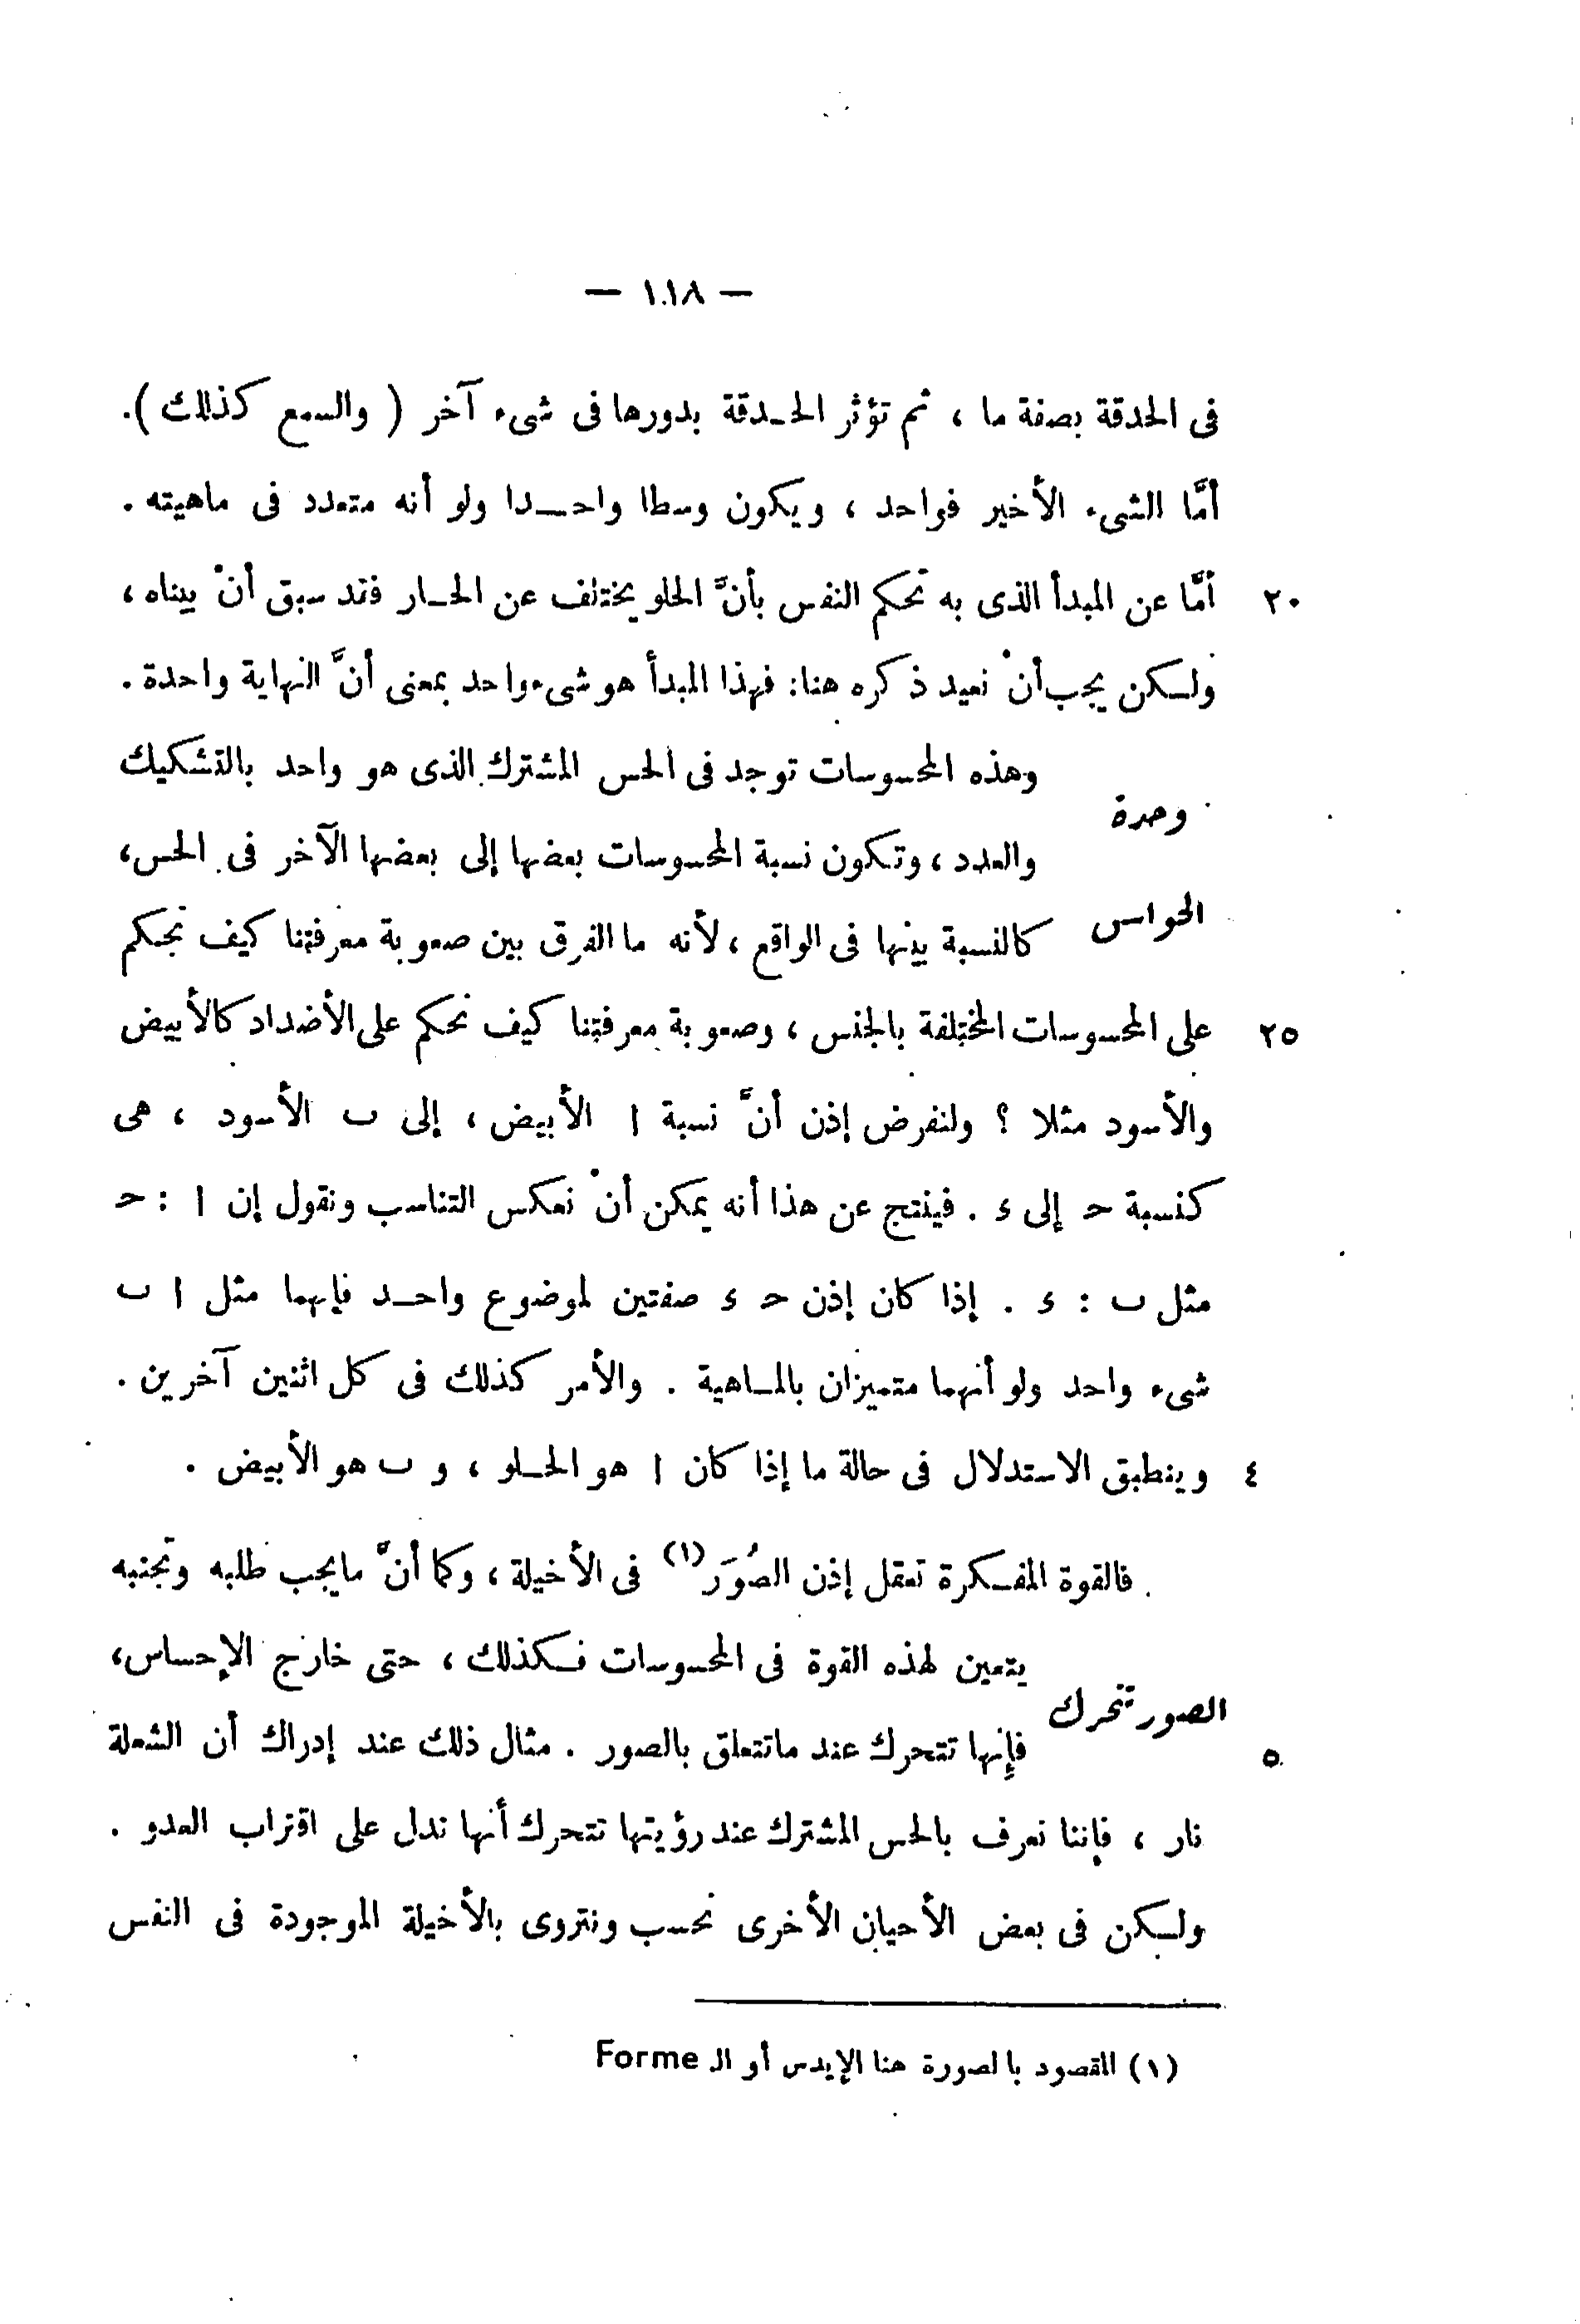 — ١١٨ —
فى الحدقة بصفة ما ، ثم تؤثر الحدقة بدورها فى شىء آخر ( والسمع كذلك ).
أمَّا الشىء الأخير فواحد ، ويكون وسطا واحدا ولو أنه متعدد فى ماهيته .
٢٠ أمَّا عن المبدأ الذى به تحكم النفس بأنَّ الحلو يختلف عن الحار فقد سبق أنْ بيناه ،
ولكن يجب أنْ نعيد ذكره هنا : فهذا المبدأ هو شىء واحد بمعنى أنَّ النهاية واحدة .
وهذه المحسوسات توجد فى الحس المشترك الذى هو واحد بالتشكيك
وحدة
والعدد ، وتكون نسبة المحسوسات بعضها إلى بعضها الآخر فى الحس ،
الحواس
كالنسبة بينها فى الواقع ، لأنه ما الفرق بين صعوبة معرفتنا كيف نحكم
٢٥ على المحسوسات المختلفة بالجنس ، وصعوبة معرفتنا كيف نحكم على الأضداد كالأبيض
والأسود مثلا ؟ ولنفرض إذن أنَّ نسبة ا الأبيض ، إلى ب الأسود ، هى
كنسبة ح إلى ء . فينتج عن هذا أنه يمكن أنْ نعكس التناسب ونقول إن ا : ح
مثل ب : ء . إذا كان إذن ح ء صفتين لموضوع واحد فإنهما مثل ا ب
شىء واحد ولو أنهما متميزان بالماهية . والأمر كذلك فى كل اثنين آخرين .
٤ وينطبق الاستدلال فى حالة ما إذا كان ا هو الحلو ، و ب هو الأبيض .
فالقوة المفكرة تعقل إذن الصُوَر (١) فى الأخيلة ، وكما أنَّ ما يجب طلبه وتجنبه
يتعين لهذه القوة فى المحسوسات فكذلك ، حتى خارج الإحساس ،
الصور تحرك
٥ فإنها تتحرك عند ما تتعلق بالصور . مثال ذلك عند إدراك أن الشعلة
نار ، فإننا نعرف بالحس المشترك عند رؤيتها تتحرك أنها تدل على اقتراب العدو .
ولكن فى بعض الأحيان الأخرى نحسب ونتروى بالأخيلة الموجودة فى النفس
(١) المقصود بالصورة هنا الإيدس أو الـ Forme